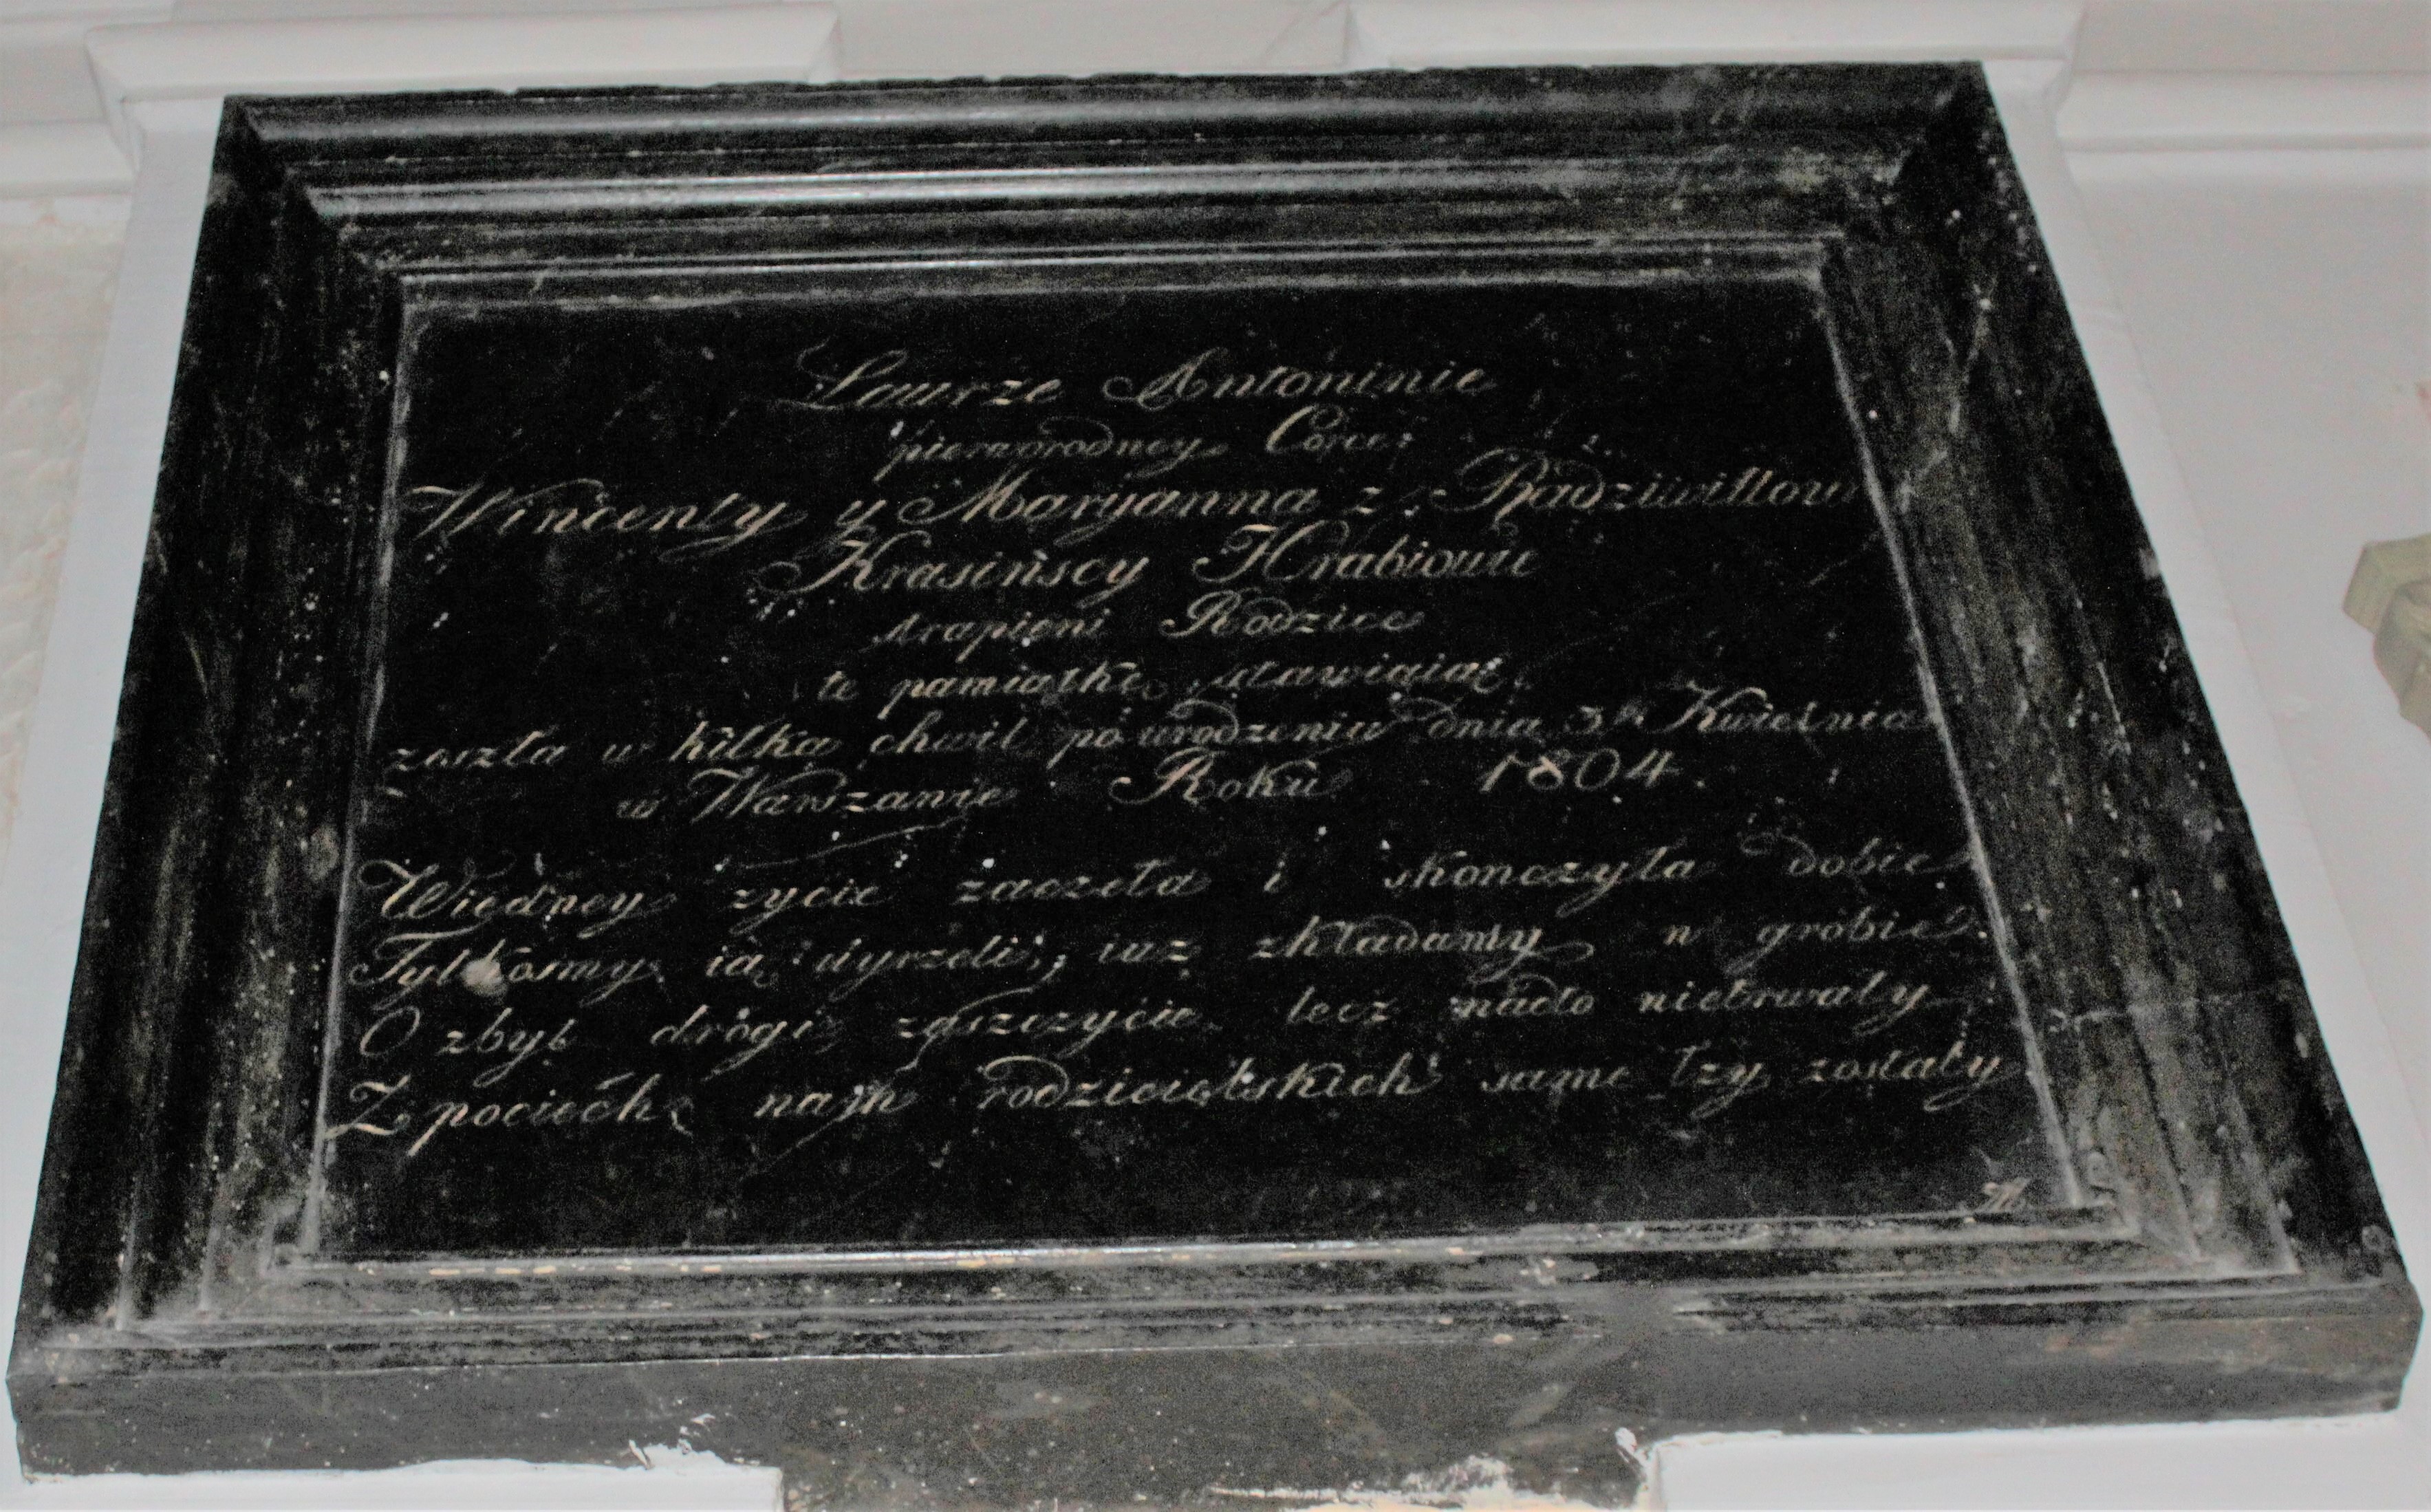 Laurze Antoninie
pierworodney Córce
Wincenty y Maryanna z Radziwiłłow
Krasińscy Hrabiowie
strapieni Rodzice
tę pamiątkę stawiaią
zeszła w kilka chwil po urodzeniu dnia 3go Kwietnia
w Warszawie Roku 1804
Wiedney zycie zaczeła i skonczyła dobie
Tylkosmy ią uyrzeli, iuz składamy w grobie
O zbyt drogi zaszczycie lecz nadto nietrwały
Z pociech nasyh rodzicielskich same łzy zostały
M